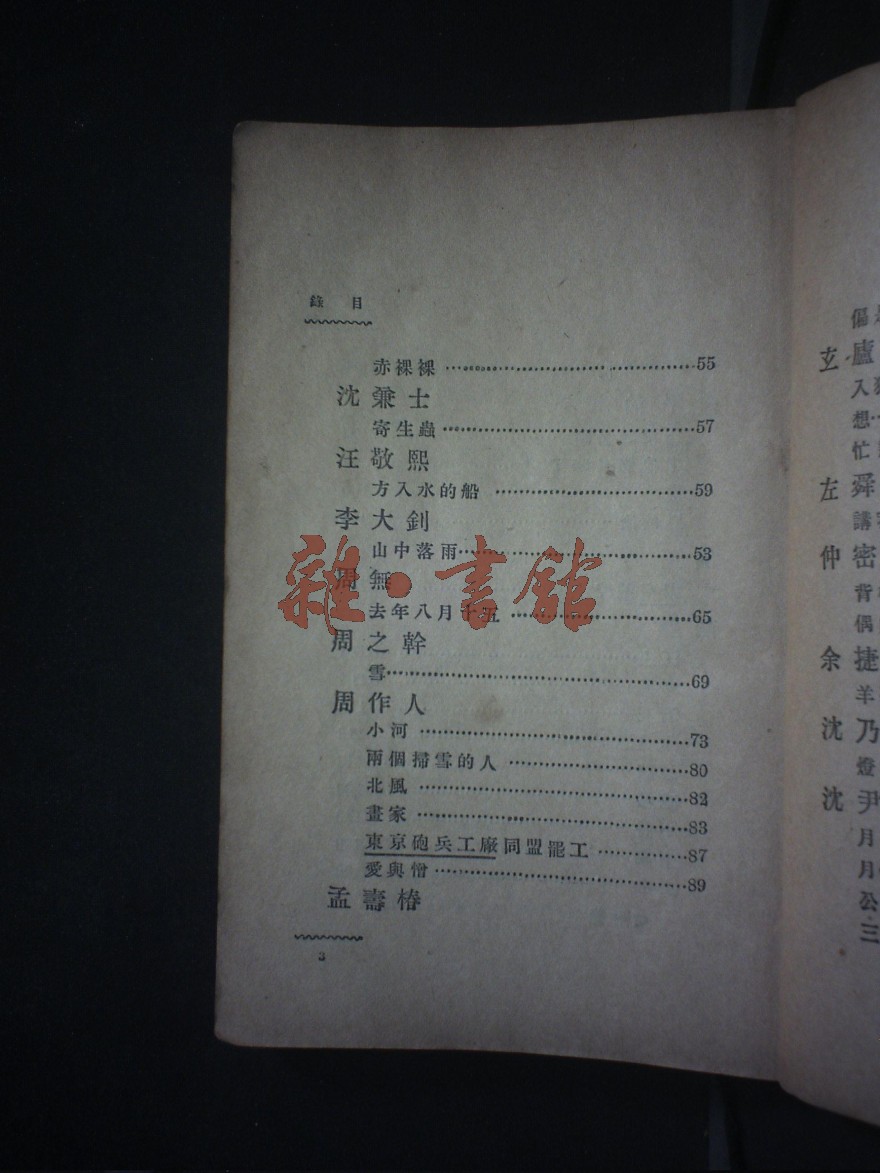 錄目
赤裸裸……55
沈兼士
寄生蟲……57
汪敬熙
方入水的船……59
李大釗
山中落雨……53
周無
去年八月十五……65
周之幹
雪……69
周作人
小河……73
兩個掃雪的人……80
北風……82
畫家……83
東京砲兵工廠同盟罷工……87
愛與憎……89
孟壽椿
3
雜·書館
偏
玄廬
入
想
忙
左舜
講
仲密
背
偶
余捷
羊
沈乃
燈
沈尹
月
月
公
三